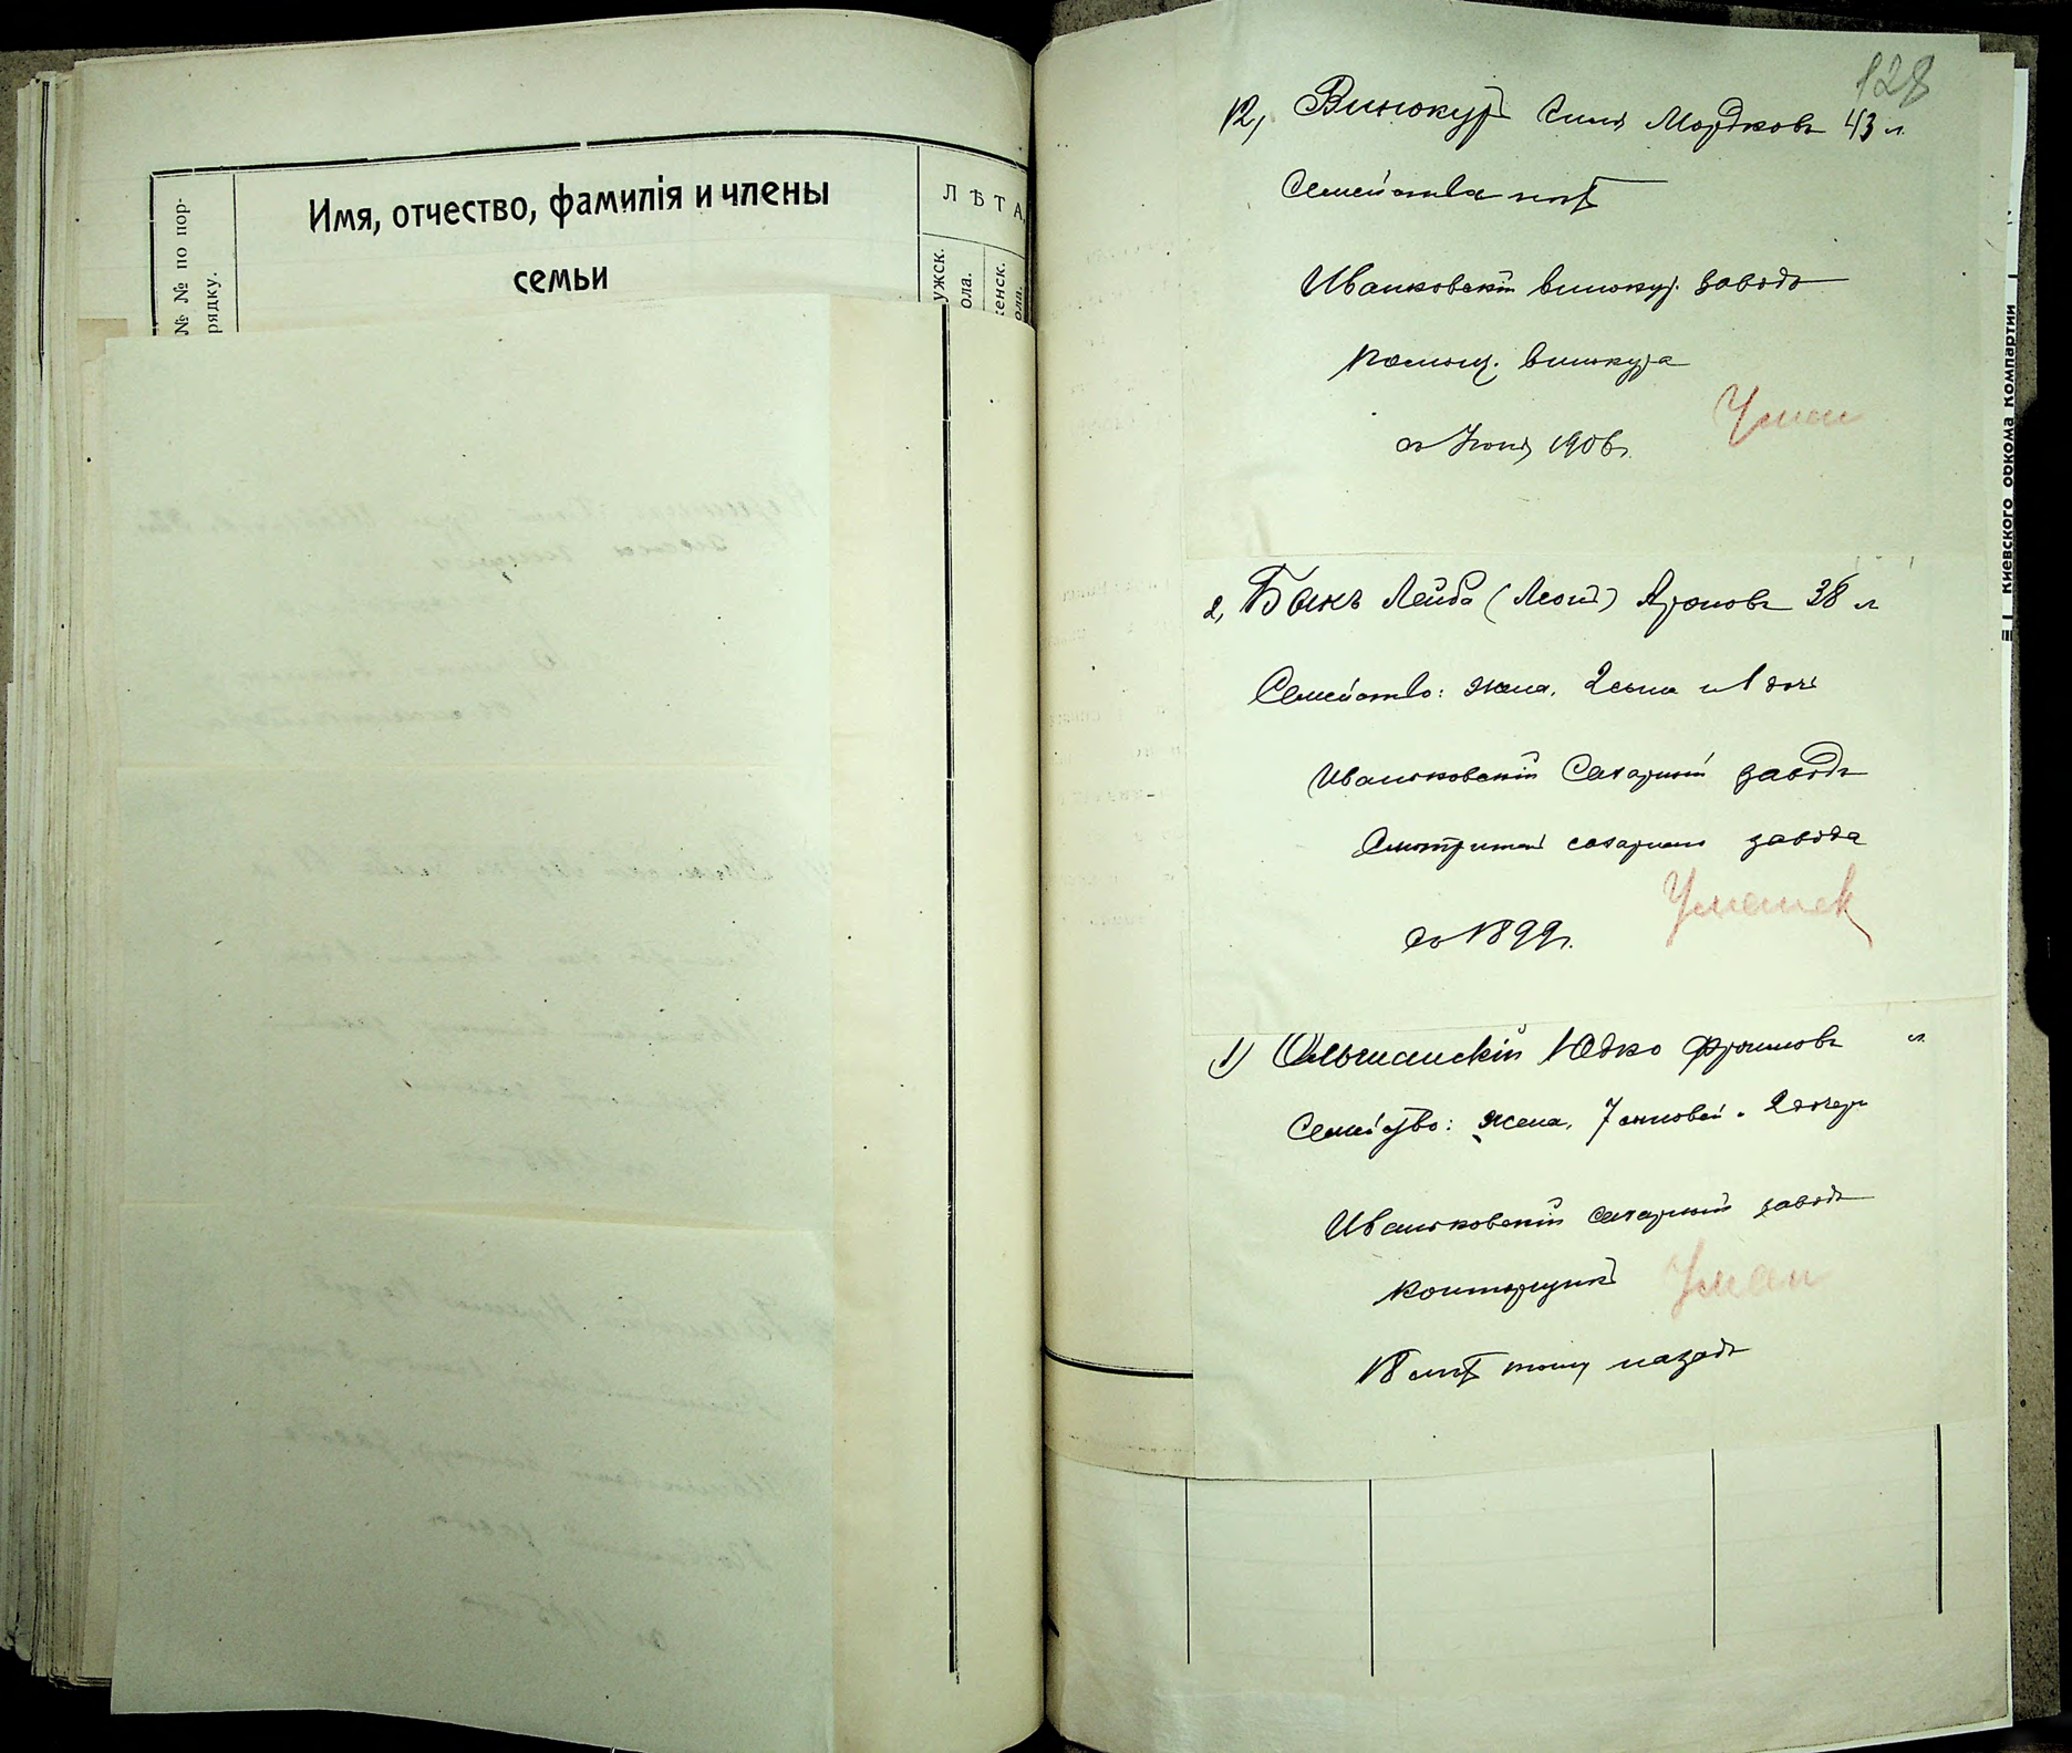 № № по пор-
рядку.
Имя, отчество, фамилія и члены
семьи
ЛѢТА,
ужск.
ола.
женск.
пола.
128
12, Винокуръ Мордковъ 43 л.
Семейства нѣтъ
Иваньковскій винокур. заводъ
Помощ. винокура
съ Іюня 1906 г.
Уман
2, Бакъ Лейба (Леонъ) Ароновъ 38 л
Семейство: жена, 2 сына и 1 дочь
Иваньковскій Сахарный заводъ
Смотритель сахарнаго завода
Уманск
съ 1899 г.
1) Ольшанскій Юдко Фроимовъ л.
Семейство: жена, 7 сыновей и 2 дочери
Иваньковскій сахарный заводъ
конторщикъ
Уман
18 лѣтъ тому назадъ
Киевского обкома компартии